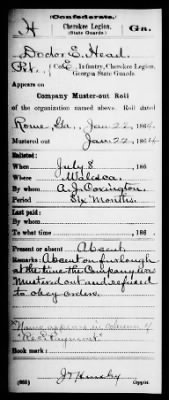 Confederate.
H
Cherokee Legion,
(State Guards.)
Ga.
Doctor S. Head
Pvt., Co. E, Infantry, Cherokee Legion,
Georgia State Guards.
Appears on
Company Muster-out Roll
of the organization named above. Roll dated
Rome, Ga., Jan 22, 1864.
Mustered out Jan 22, 1864
Enlisted:
When July 8, 186
Where
By whom A. J. Covington,
Period Six Months.
Last paid:
By whom
To what time , 186
Present or absent Absent
Remarks: Absent on furlough
at the time the Company was
Mustered out and refused
to obey orders.
"Name appears in column of
Book mark:
(665) Copyist.